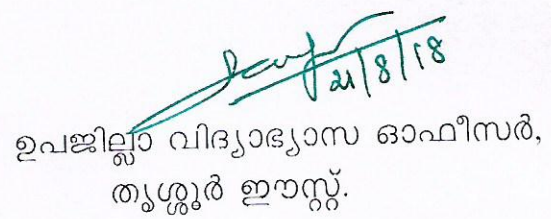 21/8/18
ഉപജില്ലാ വിദ്യാഭ്യാസ ഓഫീസർ,
തൃശ്ശൂർ ഈസ്റ്റ്.